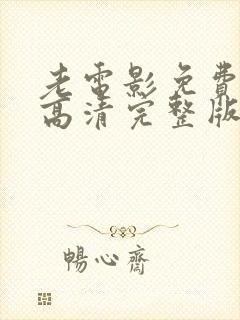 老電影免費
高清完整版
暢心齋